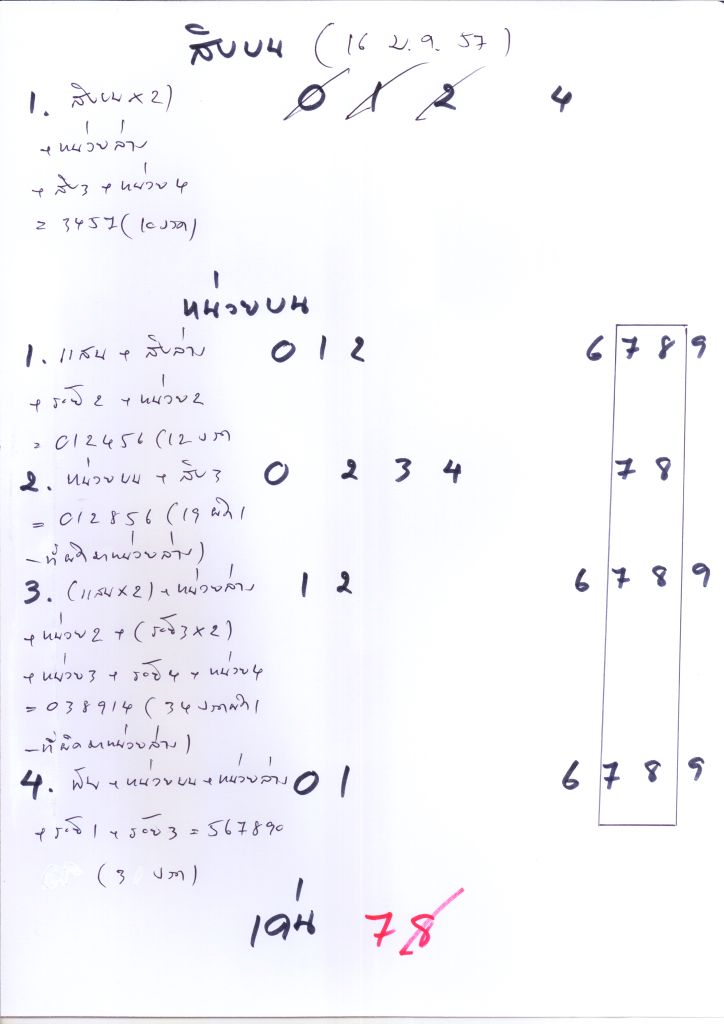 สิบบน (16 ม.ค. 57)
1. สิบบน x 2) 0 1 2 4
+ หน่วยล่าง
+ สิบ3 + หน่วย4
= 3457 (10 งวด)
หน่วยบน
1. แสน + สิบล่าง 0 1 2 6 7 8 9
+ ร้อย2 + หน่วย2
= 012456 (12 งวด
2. หน่วยบน + สิบ3 0 2 3 4 7 8
= 012856 (19 ผิด1
-ที่ผิดมาหน่วยล่าง)
3. (แสน x 2) + หน่วยล่าง 1 2 6 7 8 9
+ หน่วย2 + (ร้อย3 x 2)
+ หน่วย3 + ร้อย4 + หน่วย4
= 038914 (34 งวดผิด1
-ที่ผิดมาหน่วยล่าง)
4. พัน + หน่วยบน + หน่วยล่าง 0 1 6 7 8 9
+ ร้อย1 + ร้อย3 = 567890
(3 งวด)
เด่น 7 8